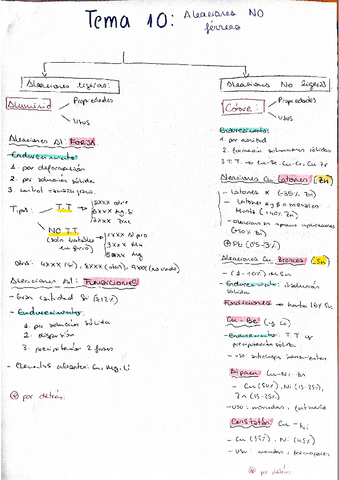 Tema 10: Aleaciones NO férreas
Aleaciones ligeras:
Aluminio
Propiedades
Usos
Aleaciones Al: FORJA
- Endurecimiento:
1. por deformación
2. por solución sólida
3. control tamaño
Tipos:
T.T
2XXX
6XXX Mg, Si
7XXX Zn
NO T.T
1XXX Al puro
3XXX Mn
5XXX Mg
Otra: 4XXX (Si), 8XXX (otros), 9XXX (no usado)
Aleaciones Al: FUNDICIONES
- Gran cantidad Si
- Endurecimiento:
1. por solución sólida
2. dispersión
3. precipitación 2 fases
- Elementos aleantes: Cu, Mg, Li
por detrás:
Aleaciones No ligeras
Cobre:
Propiedades
Usos
Endurecimiento:
1. por acritud
2. formación soluciones sólidas
3. T.T →
Aleaciones Cu Latones (Zn)
- Latones
- Latones
Pb (0'5-3%)
Aleaciones Cu Bronces (Sn)
- Endurecimiento: solución sólida
Fundiciones → hasta
Cu-Be
- Endurecimiento: T.T y precipitación sólida
- uso: herramientas
Alpaca Cu-Ni-Zn
- Cu (50%), Ni (15-25%), Zn (15-25%)
- uso: monedas,
Constatán Cu-Ni
- Cu (55%), Ni (45%)
- uso monedas, termopares
por detrás